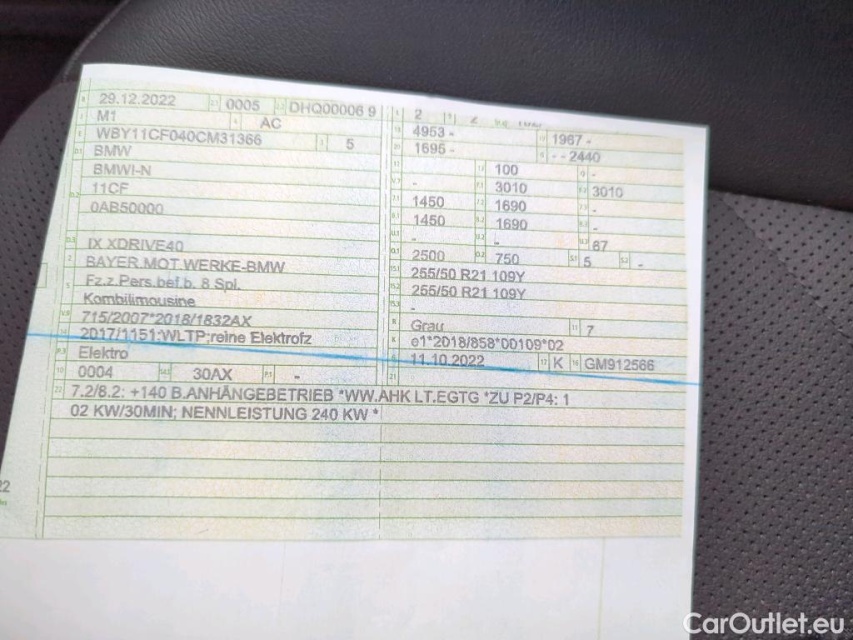 29.12.2022 0005 DHQ00006 9
M1 AC
WBY11CF040CM31366 5
BMW
BMWI-N
11CF
0AB50000
IX XDRIVE40
BAYER.MOT.WERKE-BMW
Fz.z.Pers.bef.b. 8 Spl.
Kombilimousine
715/2007*2018/1832AX
2017/1151;WLTP;reine Elektrofz
Elektro
0004 30AX -
2 2
4953 - 1967 -
1695 - - - 2440
100 -
- 3010 3010
1450 1690 -
1450 1690 -
- - 67
2500 750 5 -
255/50 R21 109Y
255/50 R21 109Y
-
Grau 7
e1*2018/858*00109*02
11.10.2022 K GM912566
7.2/8.2: +140 B.ANHÄNGEBETRIEB *WW.AHK LT.EGTG *ZU P2/P4: 1
02 KW/30MIN; NENNLEISTUNG 240 KW *
CarOutlet.eu